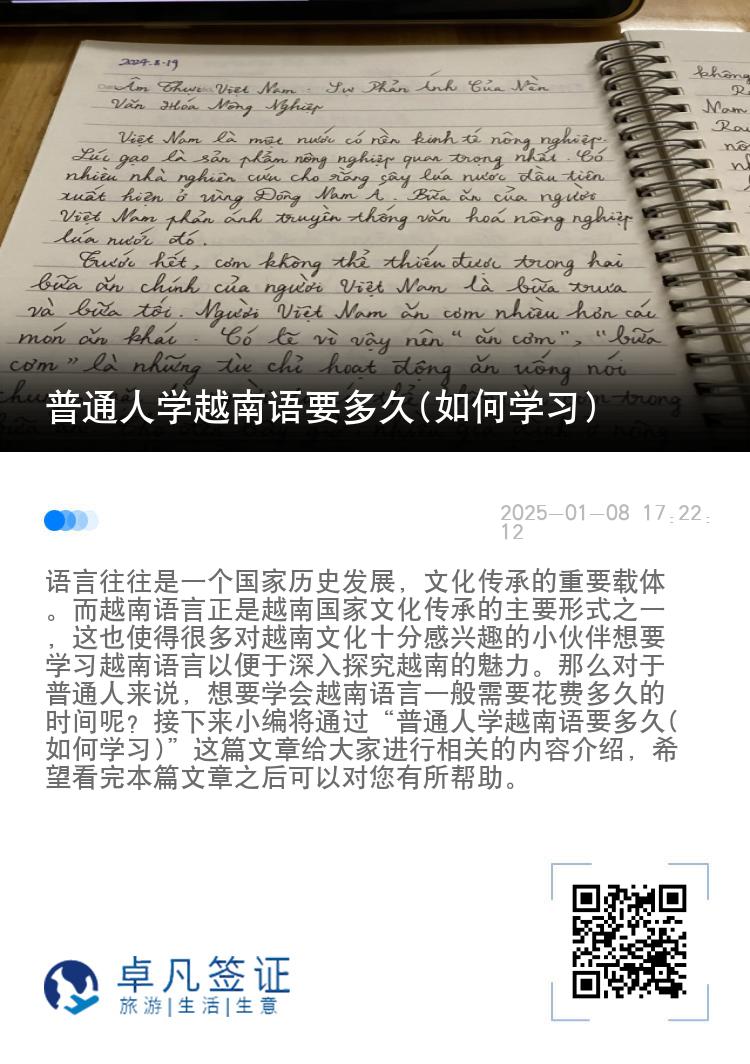 2024.8.19
Ẩm Thực Việt Nam - Sự Phản Ánh Của Nền
Văn Hóa Nông Nghiệp
Việt Nam là một nước có nền kinh tế nông nghiệp.
Lúc gạo là sản phẩm nông nghiệp quan trọng nhất. Có
nhiều nhà nghiên cứu cho rằng cây lúa nước đầu tiên
xuất hiện ở vùng Đông Nam Á. Bữa ăn của người
Việt Nam phản ánh truyền thống văn hoá nông nghiệp
lúa nước đó.
Trước hết, cơm không thể thiếu được trong hai
bữa ăn chính của người Việt Nam là bữa trưa
và bữa tối. Người Việt Nam ăn cơm nhiều hơn các
món ăn khác. Có lẽ vì vậy nên "ăn cơm", "bữa
cơm" là những từ chỉ hoạt động ăn uống nói
không
Nam
普通人学越南语要多久(如何学习)
2025-01-08 17:22:
12
语言往往是一个国家历史发展，文化传承的重要载体
。而越南语言正是越南国家文化传承的主要形式之一
，这也使得很多对越南文化十分感兴趣的小伙伴想要
学习越南语言以便于深入探究越南的魅力。那么对于
普通人来说，想要学会越南语言一般需要花费多久的
时间呢？接下来小编将通过“普通人学越南语要多久(
如何学习)”这篇文章给大家进行相关的内容介绍，希
望看完本篇文章之后可以对您有所帮助。
卓凡签证
旅游|生活|生意